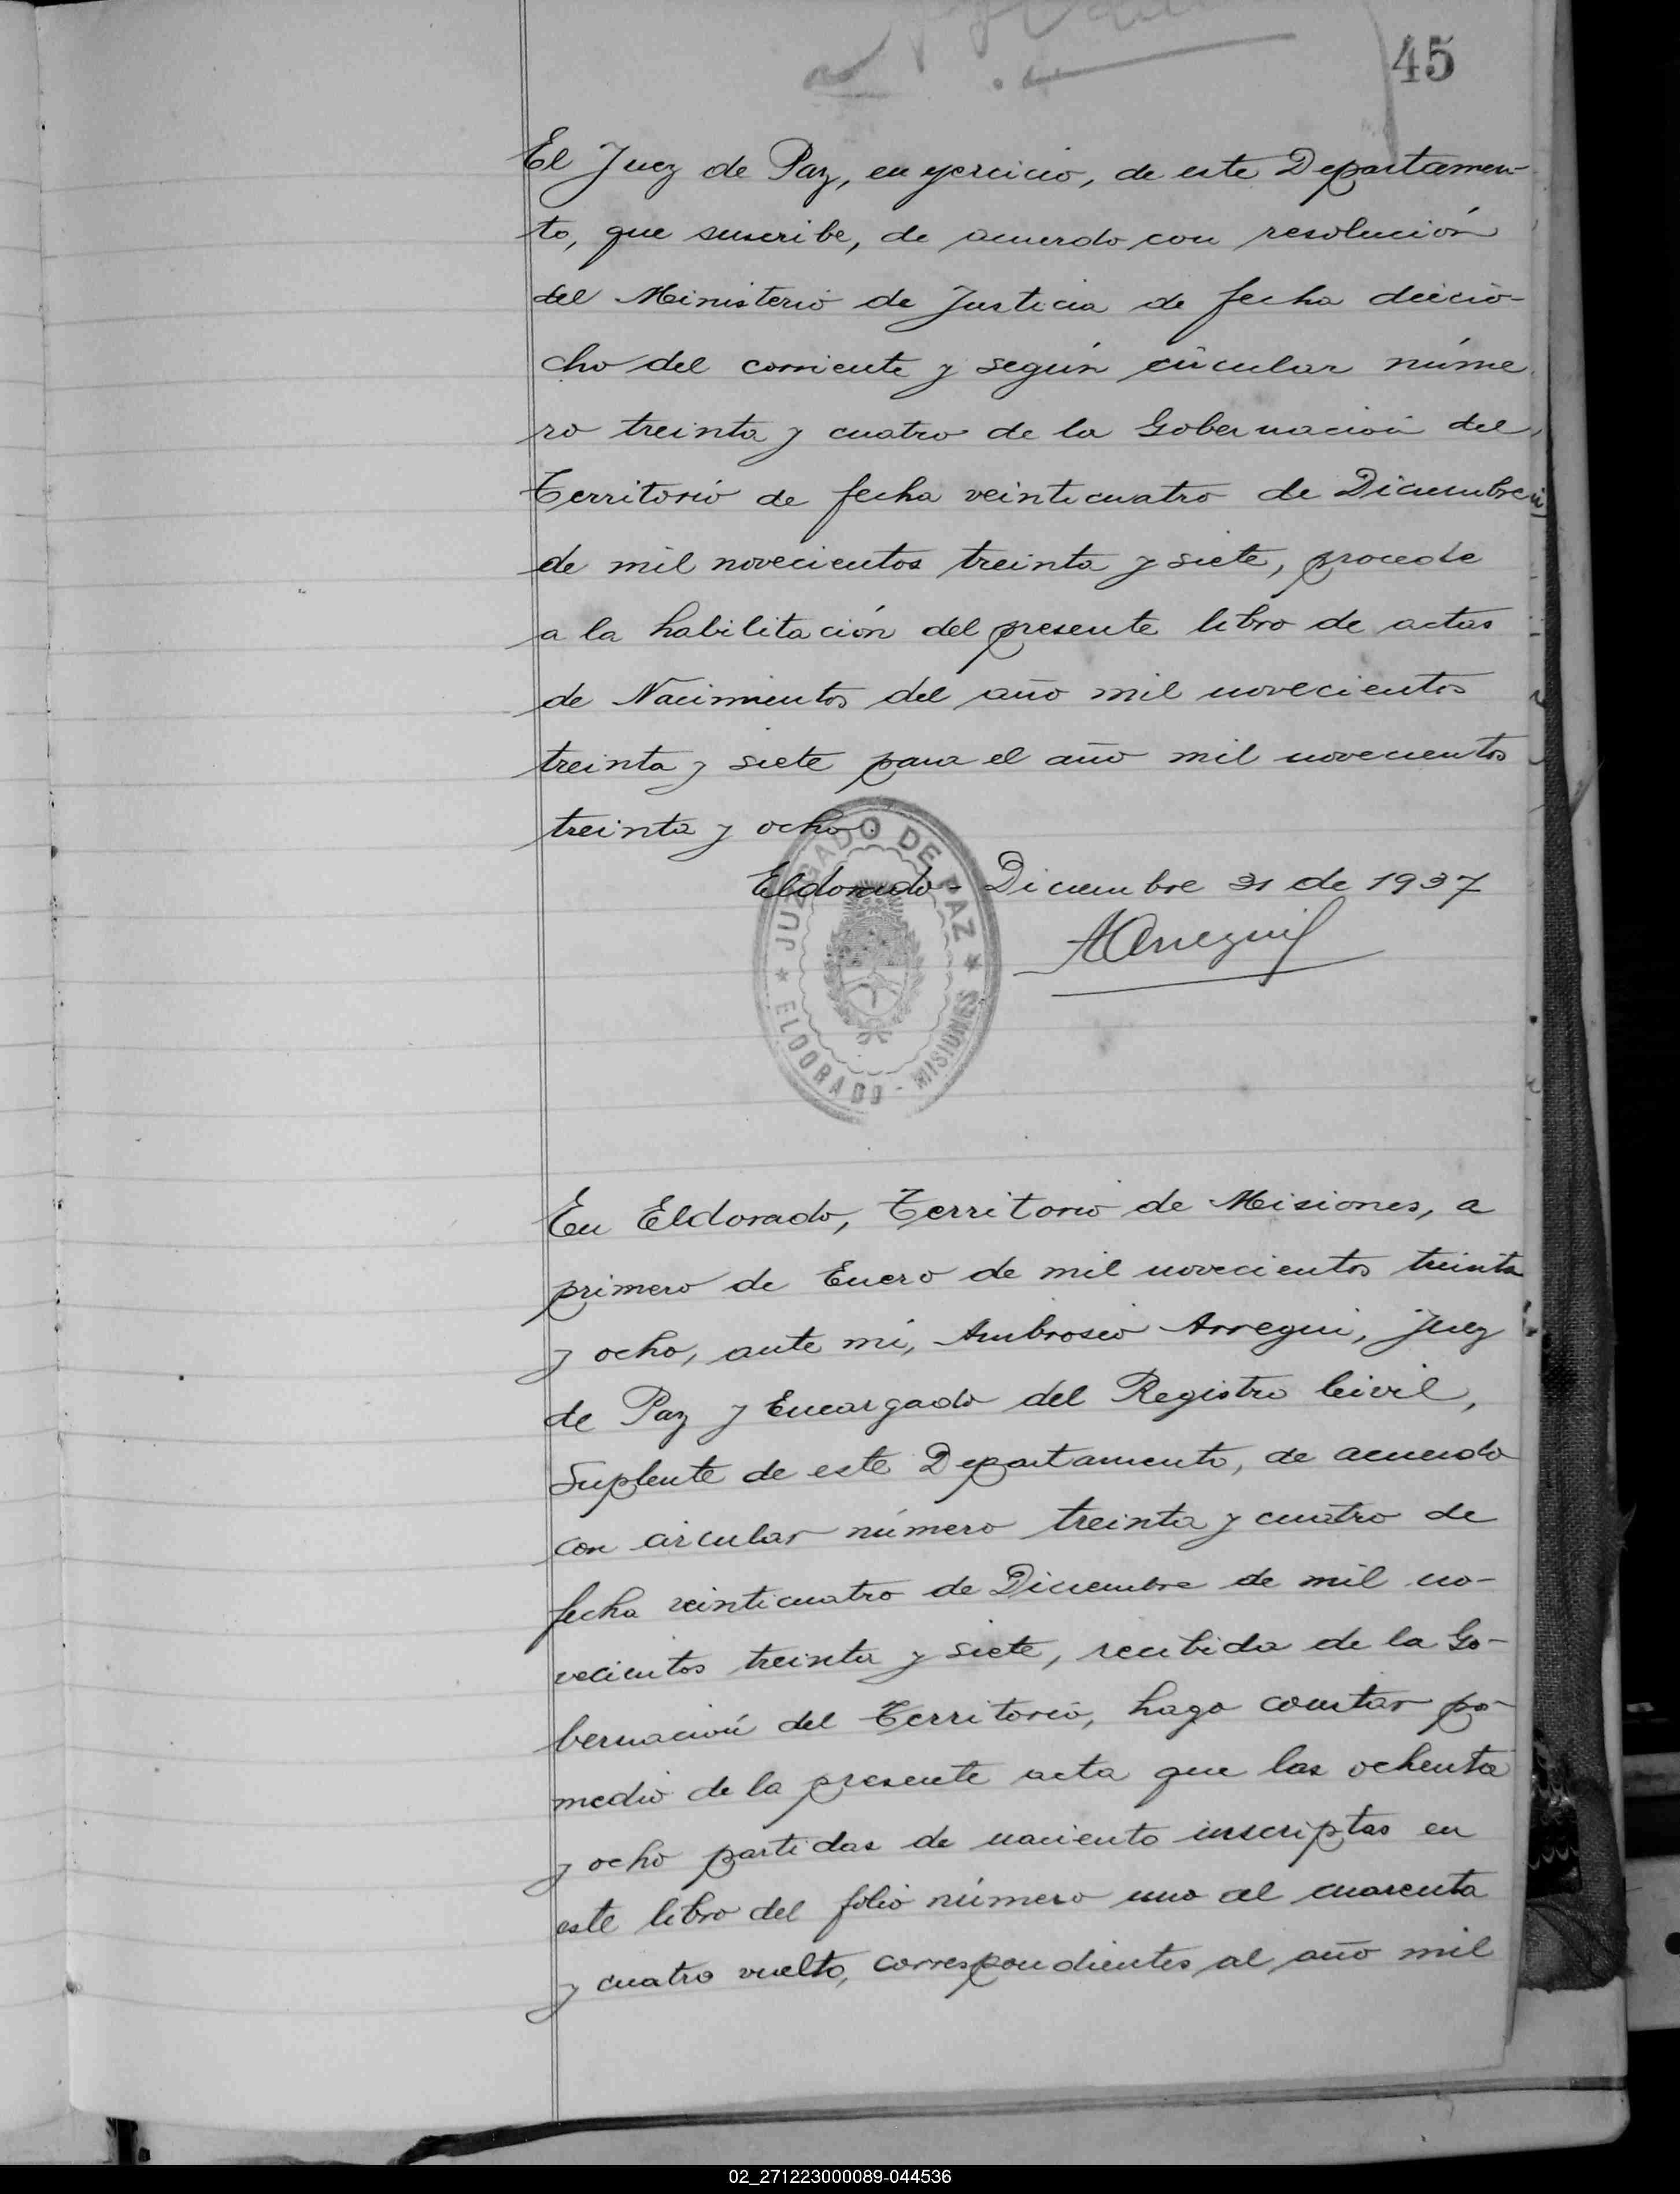 45
El Juez de Paz, en ejercicio, de este Departamen-
to, que suscribe, de acuerdo con resolución
del Ministerio de Justicia de fecha diecio-
cho del corriente y según circular núme
ro treinta y cuatro de la Gobernación del
Territorio de fecha veinticuatro de Diciembre
de mil novecientos treinta y siete, procede
a la habilitación del presente libro de actas
de Nacimientos del año mil novecientos
treinta y siete para el año mil novecientos
treinta y ocho.
Eldorado - Diciembre 31 de 1937
AArregui
JUZGADO DE PAZ
ELDORADO - MISIONES
En Eldorado, Territorio de Misiones, a
primero de Enero de mil novecientos treinta
y ocho, ante mi, Ambrosio Arregui, Juez
de Paz y Encargado del Registro Civil,
Suplente de este Departamento, de acuerdo
con circular número treinta y cuatro de
fecha veinticuatro de Diciembre de mil no-
vecientos treinta y siete, recibida de la Go-
bernación del Territorio, hago constar po-
medio de la presente acta que las ochenta
y ocho partidas de naciento inscriptas en
este libro del folio número uno al cuarenta
y cuatro vuelto, correspondientes al año mil
02_271223000089-044536